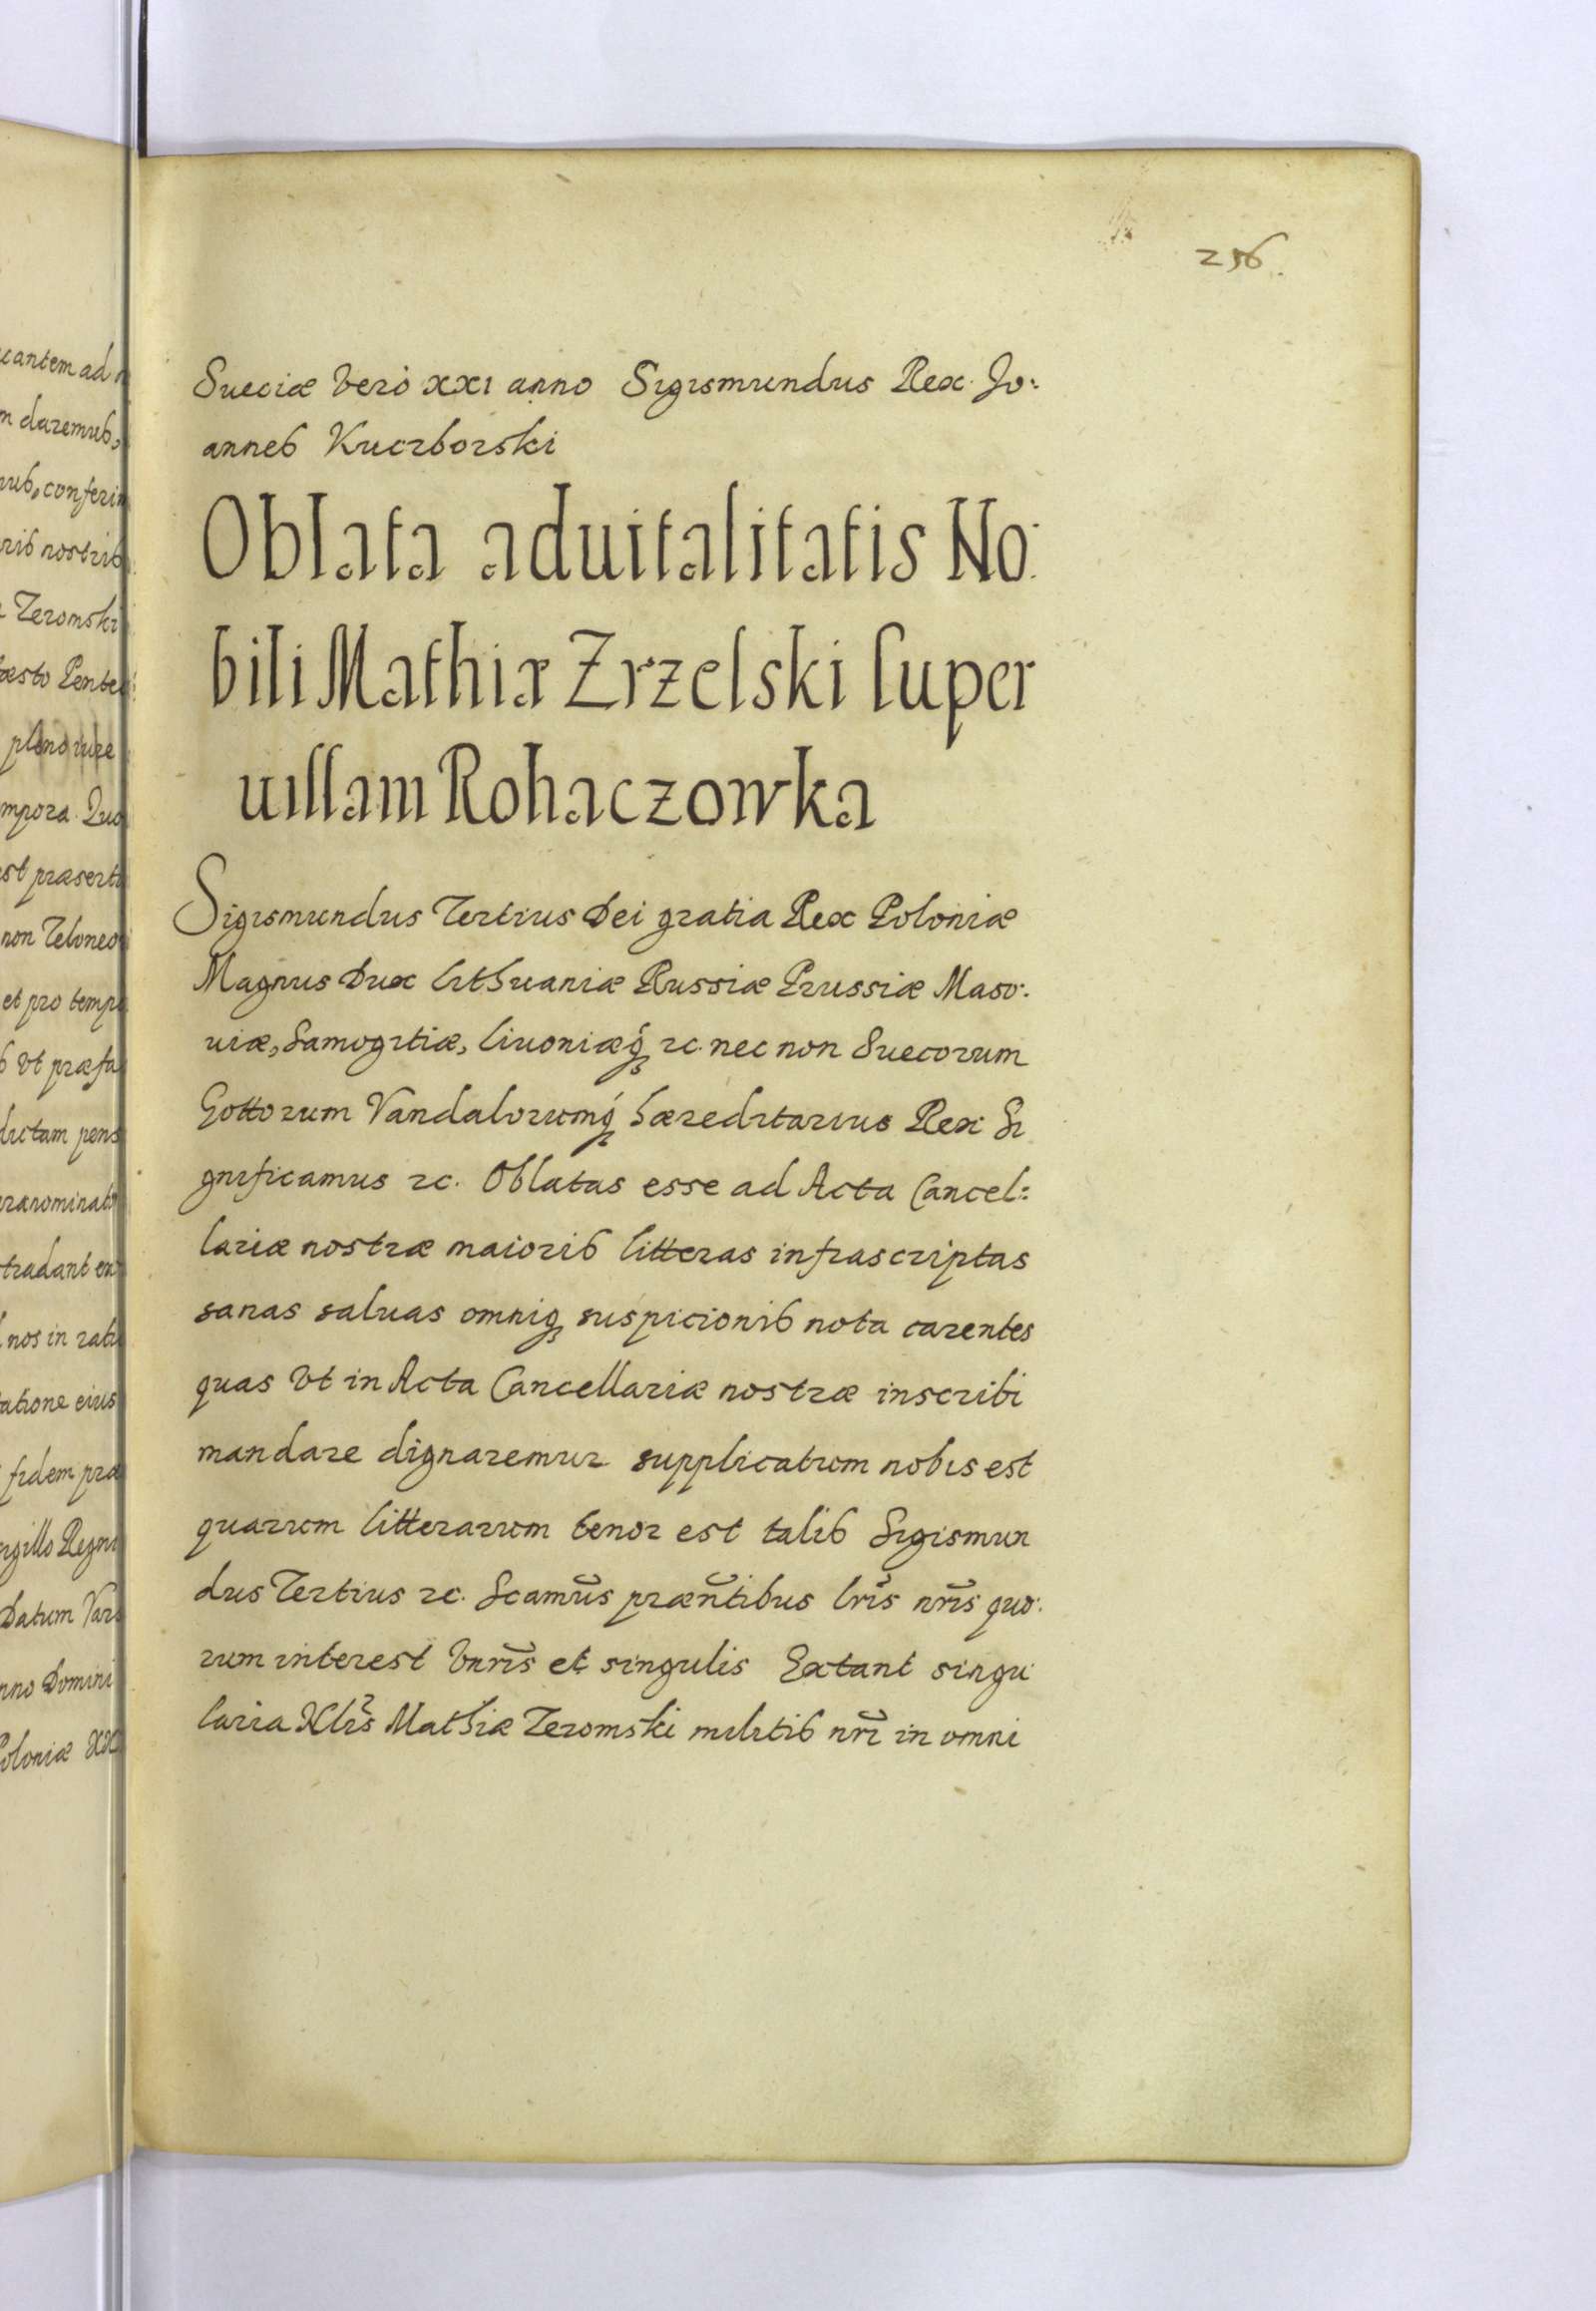 256.
Sueciæ Vero XXI anno Sigismundus Rex. Jo:
annes Kuczborski
Oblata aduitalitatis No:
bili Mathiæ Zrzelski super
uillam Rohaczowka
Sigismundus Tertius Dei gratia Rex Poloniæ
Magnus Dux Lithuaniæ Russiæ Prussiæ Maso:
uiæ, Samogitiæ, Liuoniæq́ꝫ ꝛc. nec non Suecorum
Gottorum Vandalorumq́ꝫ hæreditarius Rex Si
gnificamus ꝛc. Oblatas esse ad Acta Cancel:
lariæ nostræ maioris litteras infrascriptas
sanas saluas omniqꝫ suspicionis nota carentes
quas Vt in Acta Cancellariæ nostræ inscribi
mandare dignaremur supplicatum nobis est
quarum litterarum tenor est talis Sigismun
dus Tertius ꝛc. Scamus̃ præñtibus lris̃ nris̃ quo:
rum interest Vnris̃ et singulis Extant singu
laria Mathiæ Zeromski militis nrĩ in omni
cantem ad
daremus,
conferi
nostris
Zeromski
pleno iure
Quo
non Teloneo
et pro temp
Vt præfa
dictam pens
tradant
nos in
eius
fidem præ
Datum Vars
Domini
Poloniæ